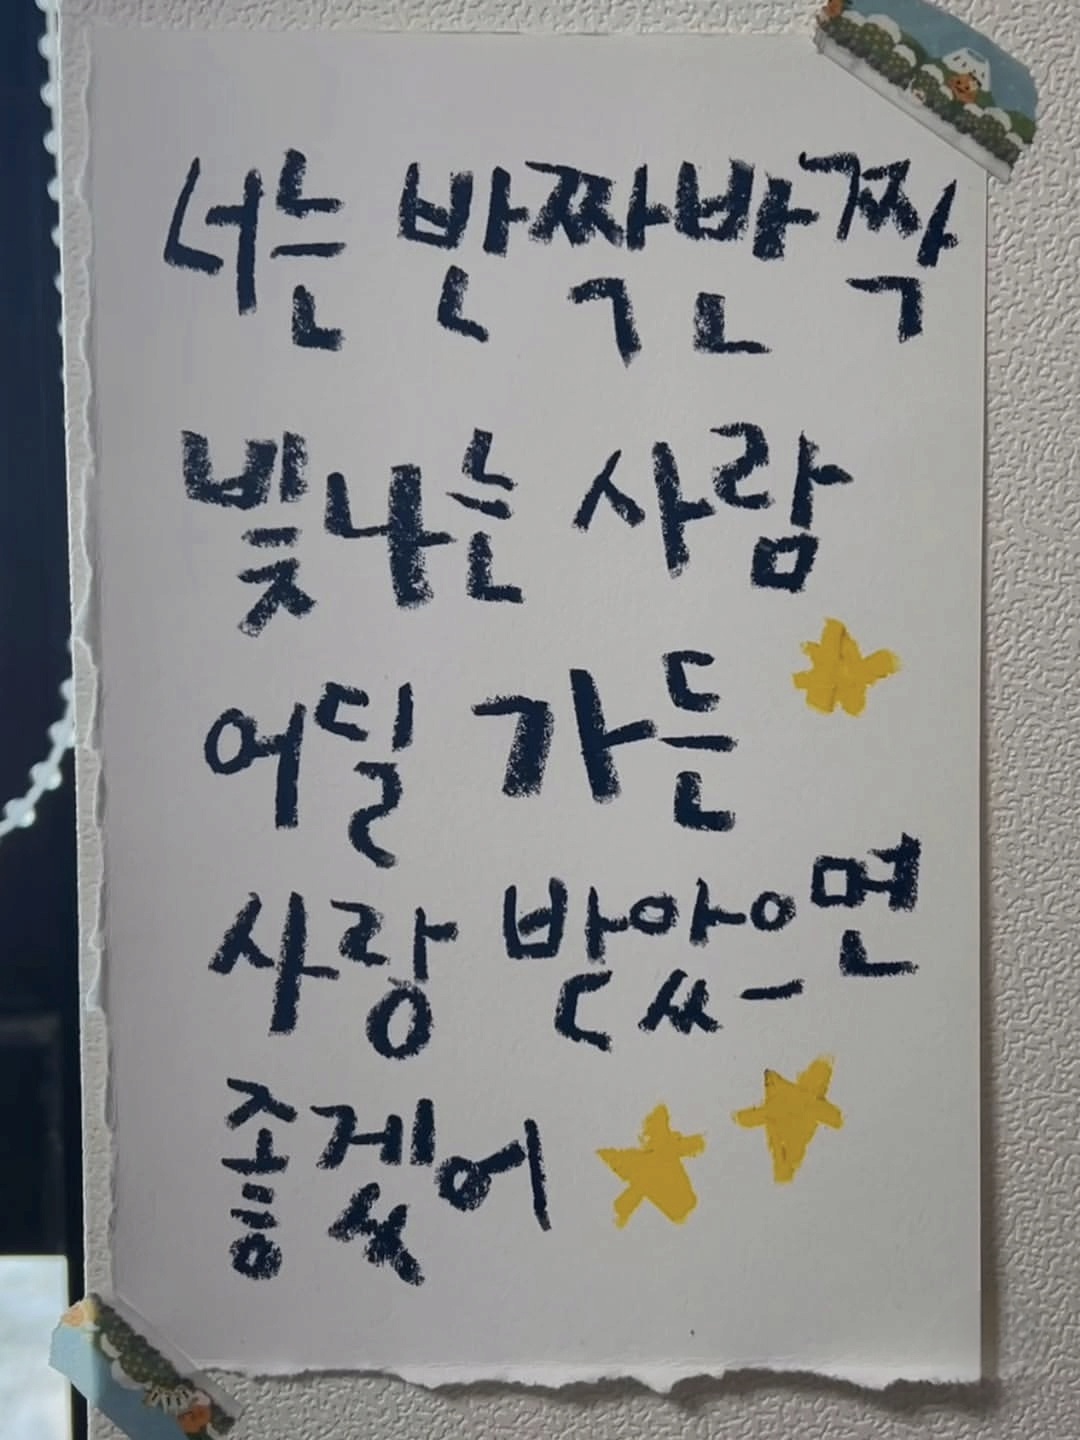 너는 반짝반짝
빛나는 사람
어딜 가든
사랑 받았으면
좋겠어